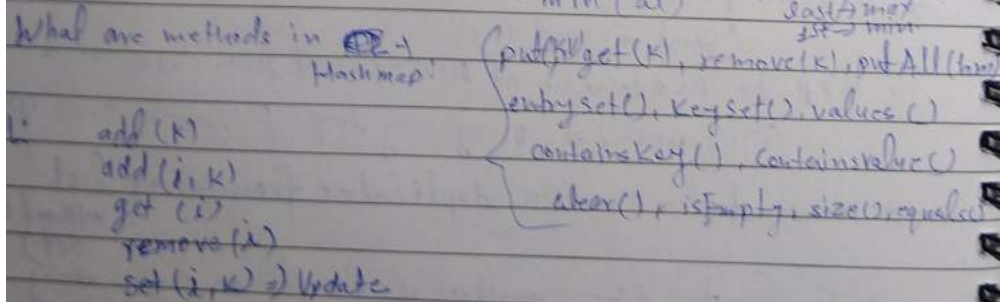 min (al)
last → max
1st → min
What are methods in
Hashmap.
put(K,V) get (K), remove (K), putAll (hm)
entryset(), keyset(), values ()
containsKey(), Containsvalue()
clear(), isEmpty, size(), equals()
add (K)
add (i, K)
get (i)
remove (i)
set (i, K) => Update